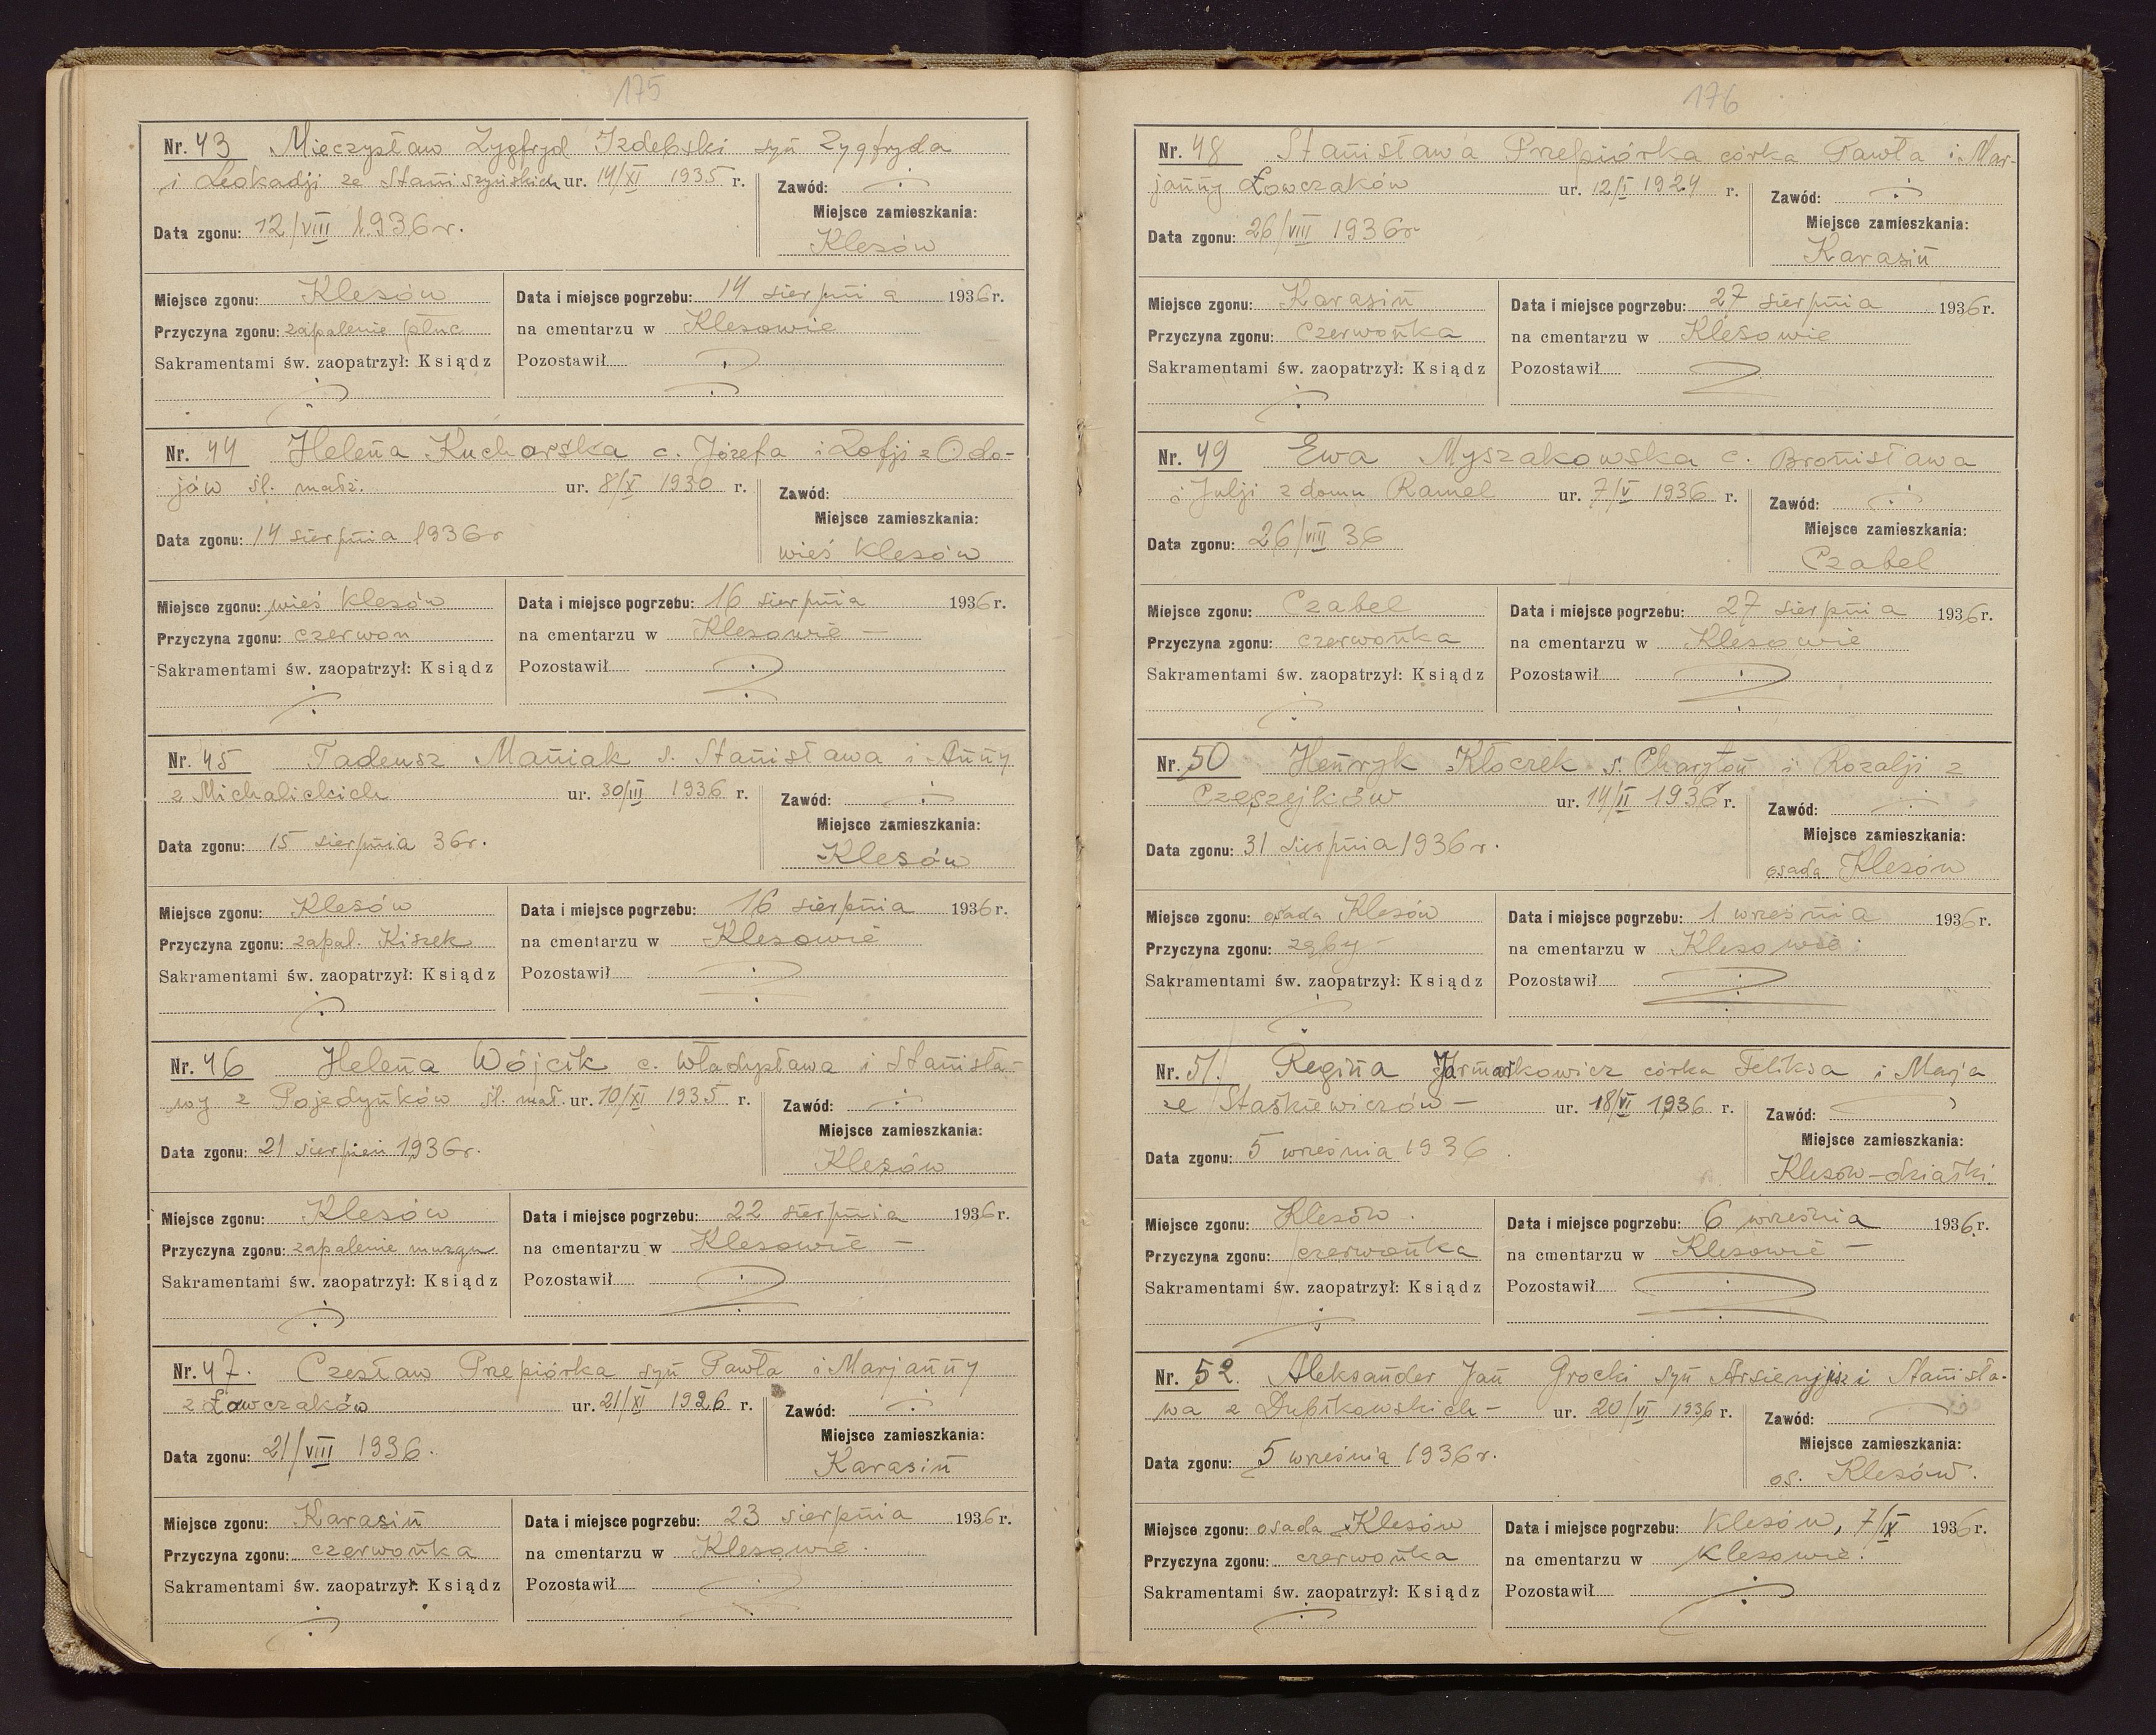 175
Nr. 43 Mieczysław Zygfryd Izdebski syn Zygfryda
i Leokadji ze Staniszyńskich ur. 14/XI 1935 r.
Zawód: ÷
Miejsce zamieszkania:
Data zgonu: 12/VIII 1936 r.
Klesów
Miejsce zgonu: Klesów
Przyczyna zgonu: zapalenie płuc
Sakramentami św. zaopatrzył: Ksiądz
Data i miejsce pogrzebu: 14 sierpnia 1936 r.
na cmentarzu w Klesowie
Pozostawił
Nr. 44 Helena Kucharska c. Józefa i Zofji z Odo-
jów śl. małż. ur. 8/X 1930 r.
Zawód:
Miejsce zamieszkania:
Data zgonu: 14 sierpnia 1936 r
wieś Klesów
Miejsce zgonu: wieś Klesów
Przyczyna zgonu: czerwon
Sakramentami św. zaopatrzył: Ksiądz
Data i miejsce pogrzebu: 16 sierpnia 1936 r.
na cmentarzu w Klesowie —
Pozostawił
Nr. 45 Tadeusz Maniak s. Stanisława i Anny
z Michalickich ur. 30/III 1936 r.
Zawód: ÷
Miejsce zamieszkania:
Data zgonu: 15 sierpnia 36 r.
Klesów
Miejsce zgonu: Klesów
Przyczyna zgonu: zapal. Kiszek
Sakramentami św. zaopatrzył: Ksiądz
Data i miejsce pogrzebu: 16 sierpnia 1936 r.
na cmentarzu w Klesowie
Pozostawił
Nr. 46 Helena Wójcik c. Władysława i Stanisła-
wy z Pojedynków śl. mał. ur. 10/XI 1935 r.
Zawód: ÷
Miejsce zamieszkania:
Data zgonu: 21 sierpień 1936 r.
Klesów
Miejsce zgonu: Klesów
Przyczyna zgonu: zapalenie muzgu
Sakramentami św. zaopatrzył: Ksiądz
Data i miejsce pogrzebu: 22 sierpnia 1936 r.
na cmentarzu w Klesowie —
Pozostawił
Nr. 47. Czesław Przepiórka syn Pawła i Marjanny
z Łowczaków ur. 21/XI 1926 r.
Zawód: ÷
Miejsce zamieszkania:
Data zgonu: 21/VIII 1936.
Karasiń
Miejsce zgonu: Karasiń
Przyczyna zgonu: czerwonka
Sakramentami św. zaopatrzył: Ksiądz
Data i miejsce pogrzebu: 23 sierpnia 1936 r.
na cmentarzu w Klesowie.
Pozostawił
176
Nr. 48 Stanisława Przepiórka córka Pawła i Mar-
janny Łowczaków ur. 12/I 1924 r.
Zawód: ÷
Miejsce zamieszkania:
Data zgonu: 26/VIII 1936 r
Karasiń
Miejsce zgonu: Karasiń
Przyczyna zgonu: czerwonka
Sakramentami św. zaopatrzył: Ksiądz
Data i miejsce pogrzebu: 27 sierpnia 1936 r.
na cmentarzu w Klesowie
Pozostawił
Nr. 49 Ewa Myszakowska c. Bronisława
i Julji z domu Ramel ur. 7/V 1936 r.
Zawód: ÷
Miejsce zamieszkania:
Data zgonu: 26/VIII 36
Czabel
Miejsce zgonu: Czabel
Przyczyna zgonu: czerwonka
Sakramentami św. zaopatrzył: Ksiądz
Data i miejsce pogrzebu: 27 sierpnia 1936 r.
na cmentarzu w Klesowie
Pozostawił
Nr. 50 Henryk Kłoczek s. Charyton i Rozalji z
ur. 14/II 1936 r.
Zawód: ÷
Miejsce zamieszkania:
Data zgonu: 31 sierpnia 1936 r.
osada Klesów
Miejsce zgonu: osada Klesów
Przyczyna zgonu: zęby —
Sakramentami św. zaopatrzył: Ksiądz
Data i miejsce pogrzebu: 1 września 1936 r.
na cmentarzu w Klesowie.
Pozostawił
Nr. 51. Regina Jarmarkowicz córka Feliksa i Marja
ze Staśkiewiczów — ur. 18/VI 1936 r.
Zawód:
Miejsce zamieszkania:
Data zgonu: 5 września 1936.
Klesów-działki
Miejsce zgonu: Klesów.
Przyczyna zgonu: czerwonka
Sakramentami św. zaopatrzył: Ksiądz
Data i miejsce pogrzebu: 6 września 1936 r.
na cmentarzu w Klesowie —
Pozostawił
Nr. 52. Aleksander Jan Grocki syn i Stanisła-
wa z Dubikowskich — ur. 20/VI 1936 r.
Zawód:
Miejsce zamieszkania:
Data zgonu: 5 września 1936 r.
os. Klesów.
Miejsce zgonu: osada Klesów
Przyczyna zgonu: czerwonka
Sakramentami św. zaopatrzył: Ksiądz
Data i miejsce pogrzebu: Klesów, 7/IX 1936 r.
na cmentarzu w Klesowie.
Pozostawił